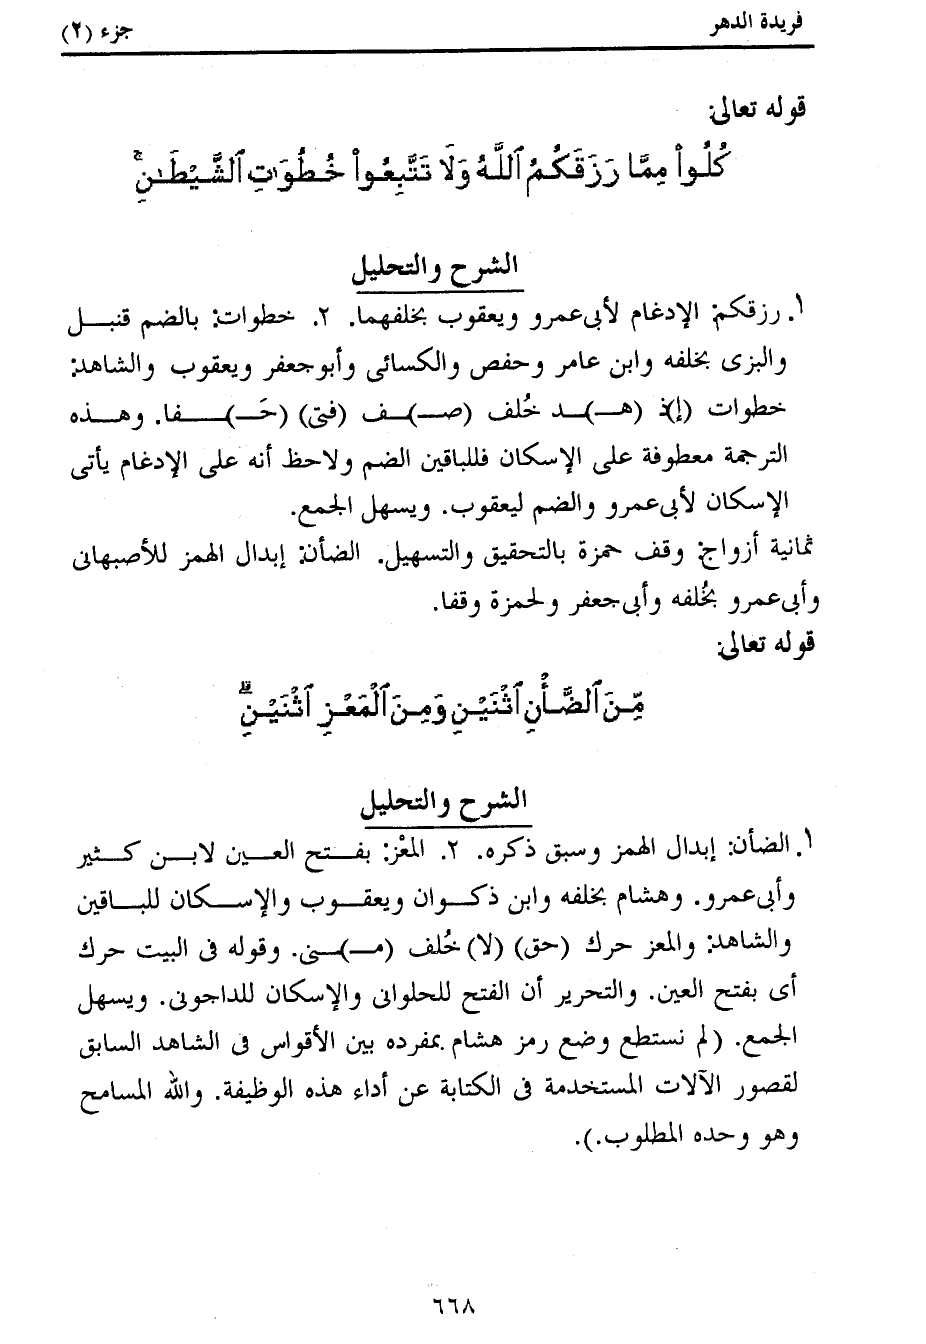 فريدة الدهر
جزء (٢)
قوله تعالى:
كُلُوا۟ مِمَّا رَزَقَكُمُ ٱللَّهُ وَلَا تَتَّبِعُوا۟ خُطُوَٰتِ ٱلشَّيْطَـٰنِ ۚ
الشرح والتحليل
١. رزقكم: الإدغام لأبى عمرو ويعقوب بخلفهما. ٢. خطوات: بالضم قنبـــل
والبزى بخلفه وابن عامر وحفص والكسائى وأبو جعفر ويعقوب والشاهد:
خطوات (إ)ذ (هـ)ـد خُلف (صـ)ـف (فتى) (حَـ)ـــفا. وهـــذه
الترجمة معطوفة على الإسكان فللباقين الضم ولاحظ أنه على الإدغام يأتى
الإسكان لأبى عمرو والضم ليعقوب. ويسهل الجمع.
ثمانية أزواج: وقف حمزة بالتحقيق والتسهيل. الضأن: إبدال الهمز للأصبهانى
وأبى عمرو بخُلفه وأبى جعفر ولحمزة وقفا.
قوله تعالى:
مِّنَ ٱلضَّأْنِ ٱثْنَيْنِ وَمِنَ ٱلْمَعْزِ ٱثْنَيْنِ ۗ
الشرح والتحليل
١. الضأن: إبدال الهمز وسبق ذكره. ٢. المعْز: بفـــتح العـــين لابـــن كـــثير
وأبى عمرو. وهشام بخلفه وابن ذكـــوان ويعقـــوب والإســـكان للبـــاقين
والشاهد: والمعز حرك (حق) (لا) خُلف (مـ)ـنى. وقوله فى البيت حرك
أى بفتح العين. والتحرير أن الفتح للحلوانى والإسكان للداجونى. ويسهل
الجمع. (لم نستطع وضع رمز هشام بمفرده بين الأقواس فى الشاهد السابق
لقصور الآلات المستخدمة فى الكتابة عن أداء هذه الوظيفة. والله المسامح
وهو وحده المطلوب.).
٦٦٨